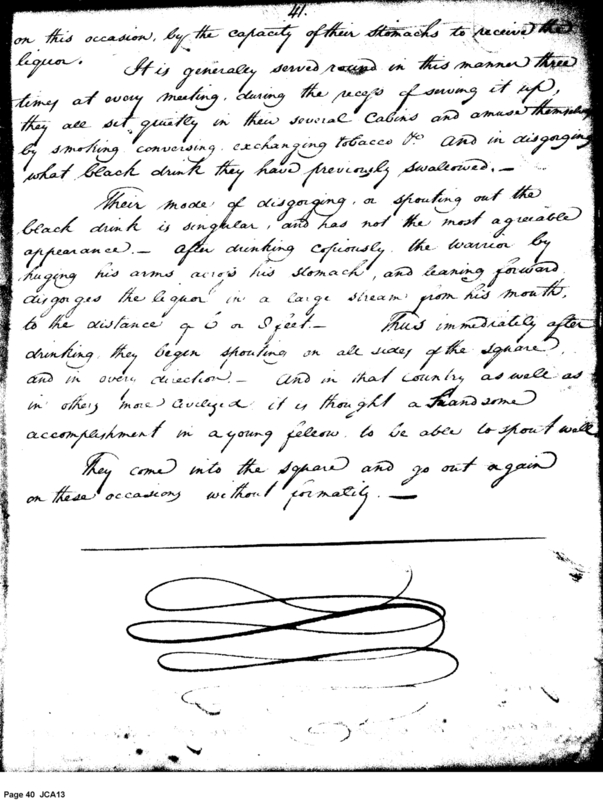 41.
on this occasion, by the capacity of their stomachs to receive the
liquor. It is generaley served round in this manner three
times at every meeting. during the recess of serving it up,
they all sit quietly in their several Cabins and amuse themselves
by smoking conversing exchanging tobacco &c. And in disgorging
what black drink they have previously swallowed.—
Their mode of disgorging, or spouting out the
black drink is singular, and has not the most agreeable
appearance.— After drinking copiously, the warrior by
huging his arms across his stomach, and leaning forward,
disgorges the liquor in a large stream from his mouth,
to the distance of 6 or 8 feet.— Thus immediately after
drinking they begin spouting on all sides of the square,
and in every direction.— And in that Country as well as
in others more civilized it is thought a handsome
accomplishment in a young fellow to be able to spout well
They come into the square and go out again
on these occasions without formatily.—
Page 40 JCA13